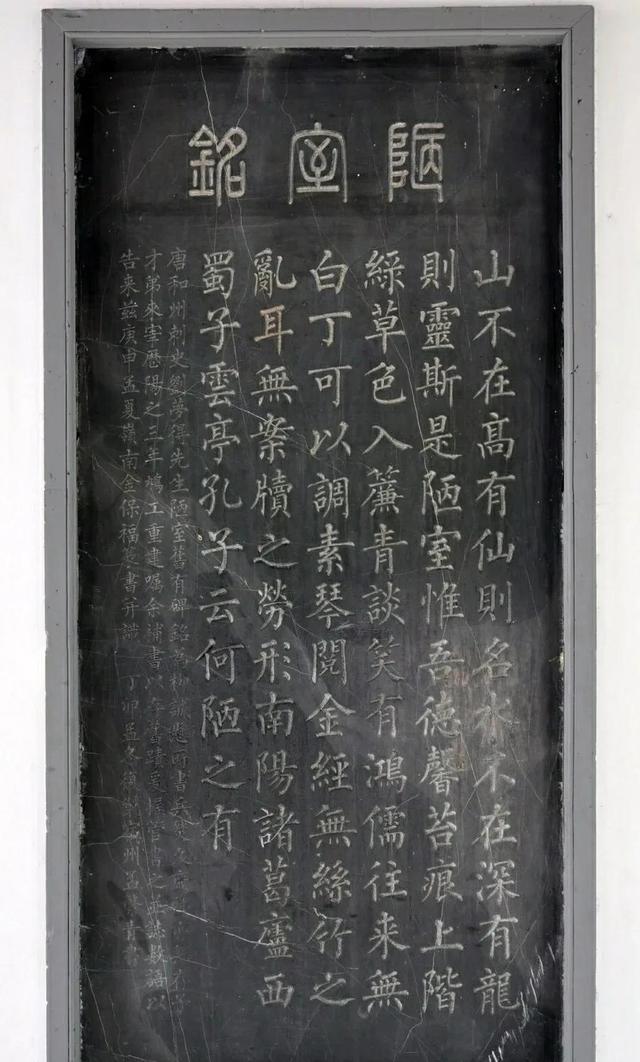 陋室銘
山不在髙有仙則名水不在深有龍
則靈斯是陋室惟吾德馨苔痕上階
緑草色入簾青談笑有鴻儒往来無
白丁可以調素琴閲金經無絲竹之
亂耳無案牘之勞形南陽諸葛廬西
蜀子雲亭孔子云何陋之有
唐和州刺史劉夢得先生陋室舊有碑銘為柳誠懸所書兵燹
才弟來宰歷陽之三年鳩工重建囑余補書以存舊蹟爰
告来兹庚申孟夏嶺南金保福書并識 丁卯孟冬